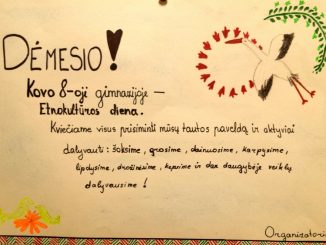 DĖMESIO!
Kovo 8-oji gimnazijoje –
Etnokultūros diena.
Kviečiame visus prisiminti mūsų tautos paveldą ir aktyviai
dalyvauti: šoksime, grosime, dainuosime, karpysime,
lipdysime, drožinėsime, kepsime ir dar daugybėje veiklų
dalyvausime!
Organizatoriai